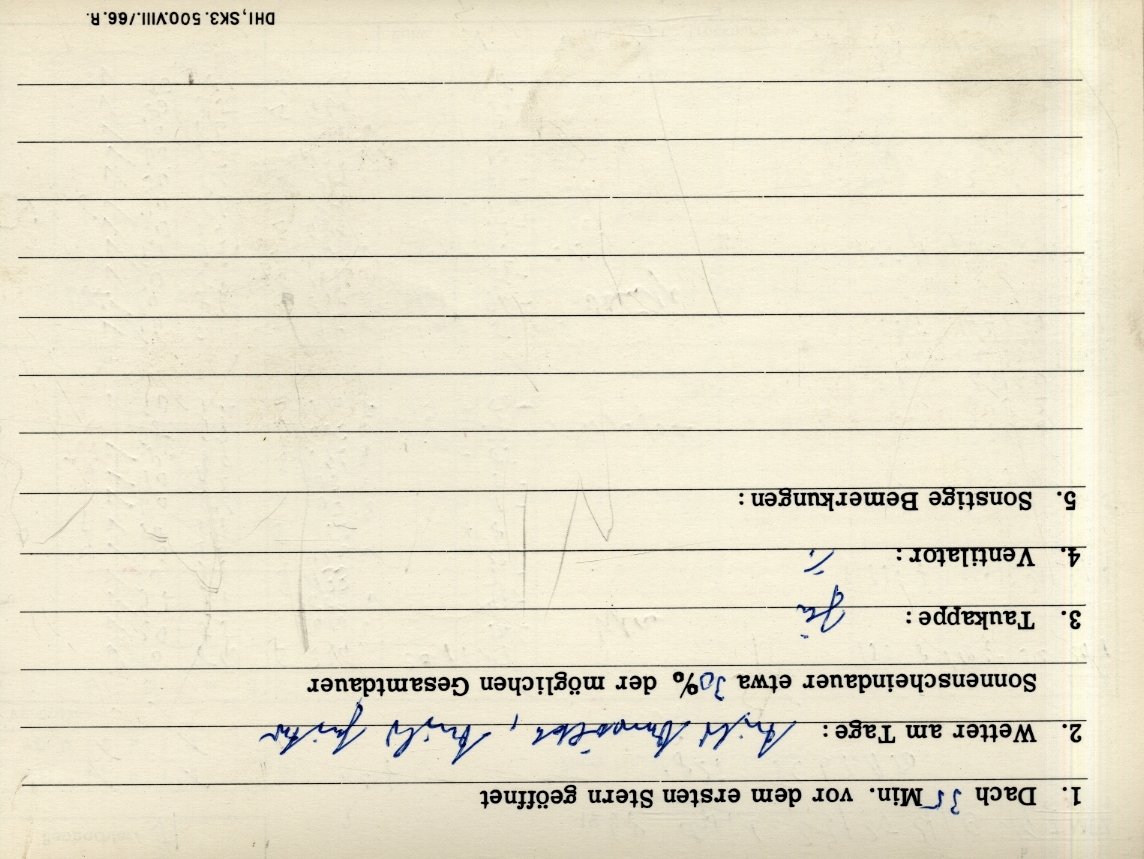 1. Dach 35 Min. vor dem ersten Stern geöffnet
2. Wetter am Tage: teils bewölkt, teils heiter
Sonnenscheindauer etwa 30% der möglichen Gesamtdauer
3. Taukappe: ja
4. Ventilator:
5. Sonstige Bemerkungen:
DHI, SK3. 500.VIII./66.R.